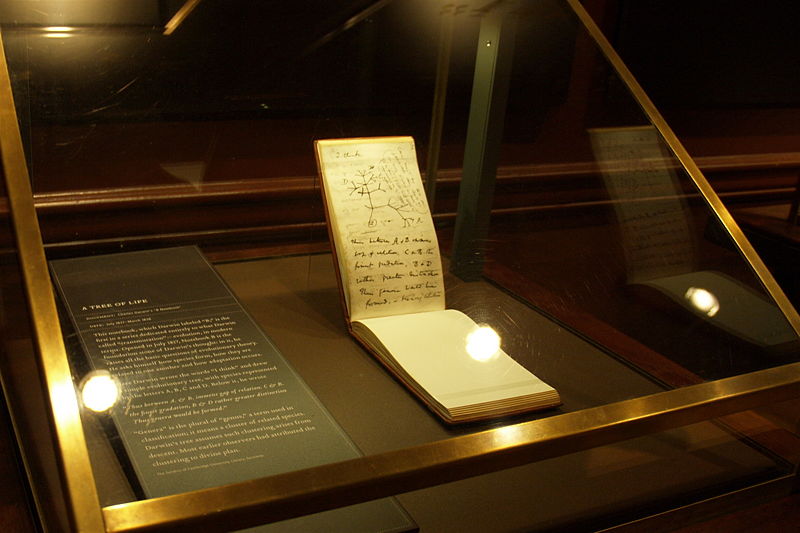 A TREE OF LIFE
DOCUMENT: Charles Darwin's "B Notebook"
DATE: July 1837–March 1838
This notebook, which Darwin labeled "B," is the
first in a series dedicated entirely to what Darwin
called "transmutation"—evolution, in modern
terms. Opened in July 1837, Notebook B is the
foundation stone of Darwin's thought: in it, he
raises all the basic questions of evolutionary theory,
how species form, how they are
related to one another and how adaptation occurs.
Here Darwin wrote the words "I think" and drew
simple evolutionary tree, with species represented
by the letters A, B, C and D. Below it, he wrote:
"Thus between A. & B. immens gap of relation. C & B.
the finest gradation, B & D rather greater distinction
Thus genera would be formed."
"Genera" is the plural of "genus," a term used in
classification; it means a cluster of related species.
Darwin's tree assumes such clustering arises from
descent. Most earlier observers had attributed the
clustering to divine plan.
The Syndics of Cambridge University Library
I think
Thus between A & B immens
gap of relation. C & B. the
finest gradation, B & D
rather greater distinction
Thus genera would be
formed. —